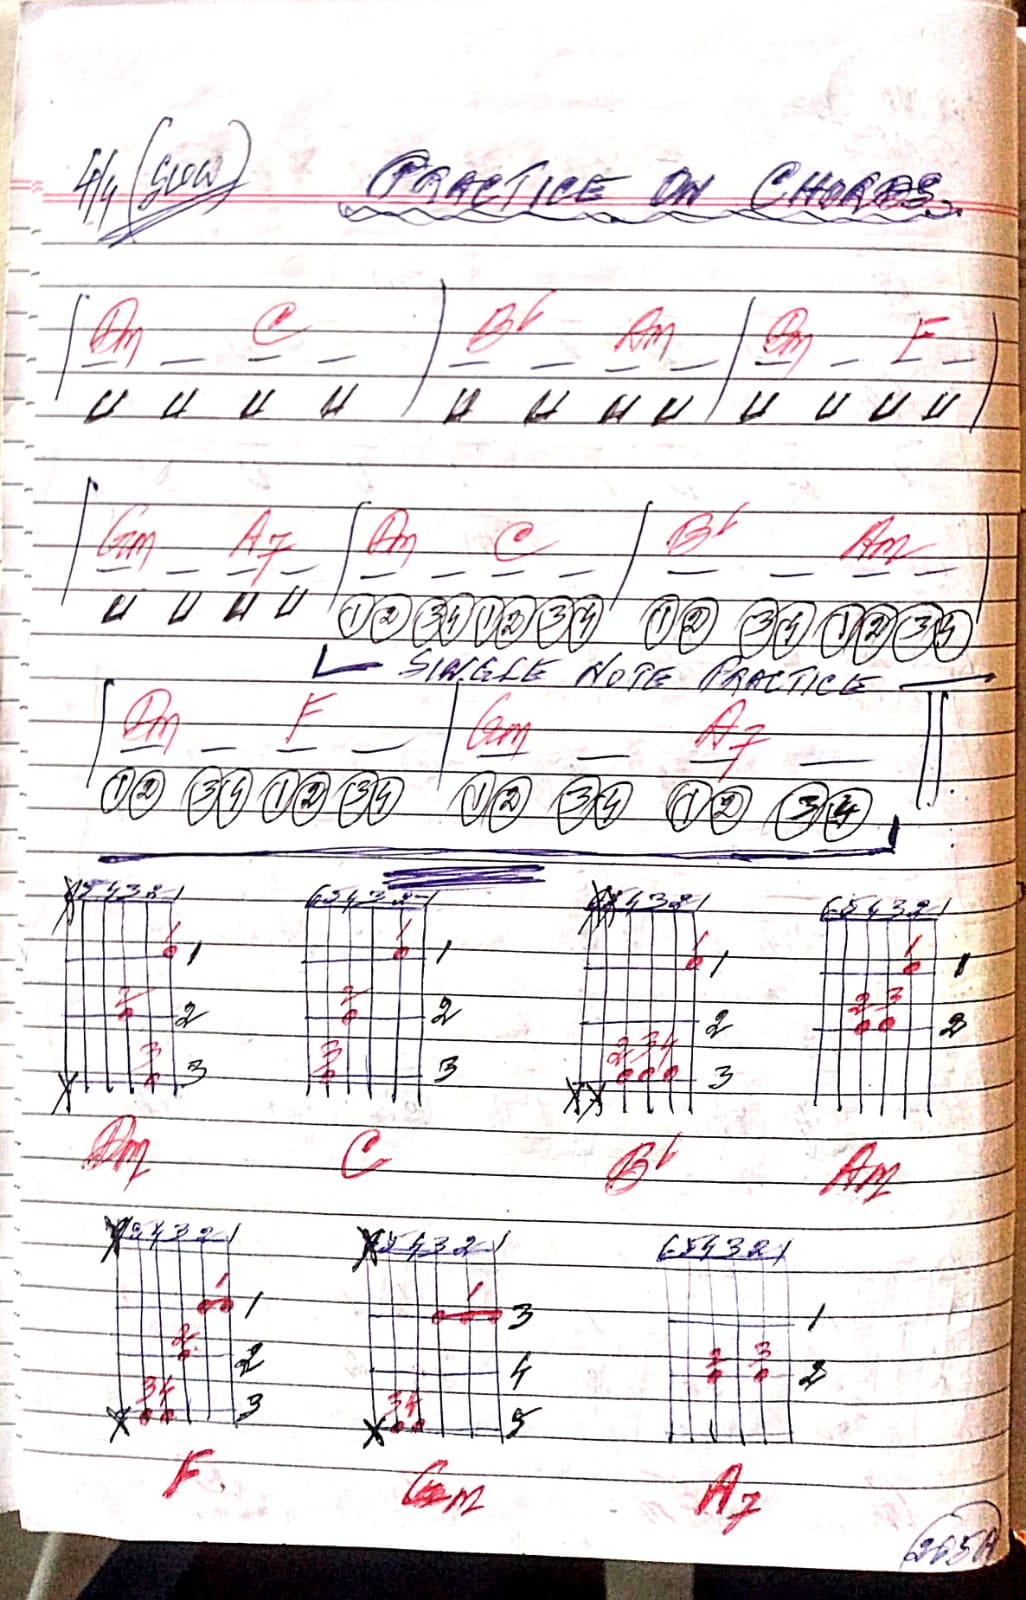 4/4 (SLOW) PRACTICE ON CHORDS.
| Dm _ C _ | B♭ _ Am _ | Dm _ F _ |
u u u u | u u u u | u u u u
| Gm _ A7 _ | Dm _ C _ | B♭ _ Am _ |
u u u u ① ② ③ ④ ① ② ③ ④ ① ② ③ ④ ① ② ③ ④
SINGLE NOTE PRACTICE
| Dm _ F _ | Gm _ A7 _ ||
① ② ③ ④ ① ② ③ ④ ① ② ③ ④ ① ② ③ ④
X 5 4 3 2 1
1
1
2
2
3
3
X
Dm
6 5 4 3 2 1
1
1
2
2
3
3
C
X X 4 3 2 1
1
1
2
2 3 4
3
X X
B♭
6 5 4 3 2 1
1
1
2 3
2
Am
X 5 4 3 2 1
1
1
2
2
3 4
3
X
F
X 5 4 3 2 1
1
3
4
3 4
5
X
Gm
6 5 4 3 2 1
1
2 3
2
A7
265A